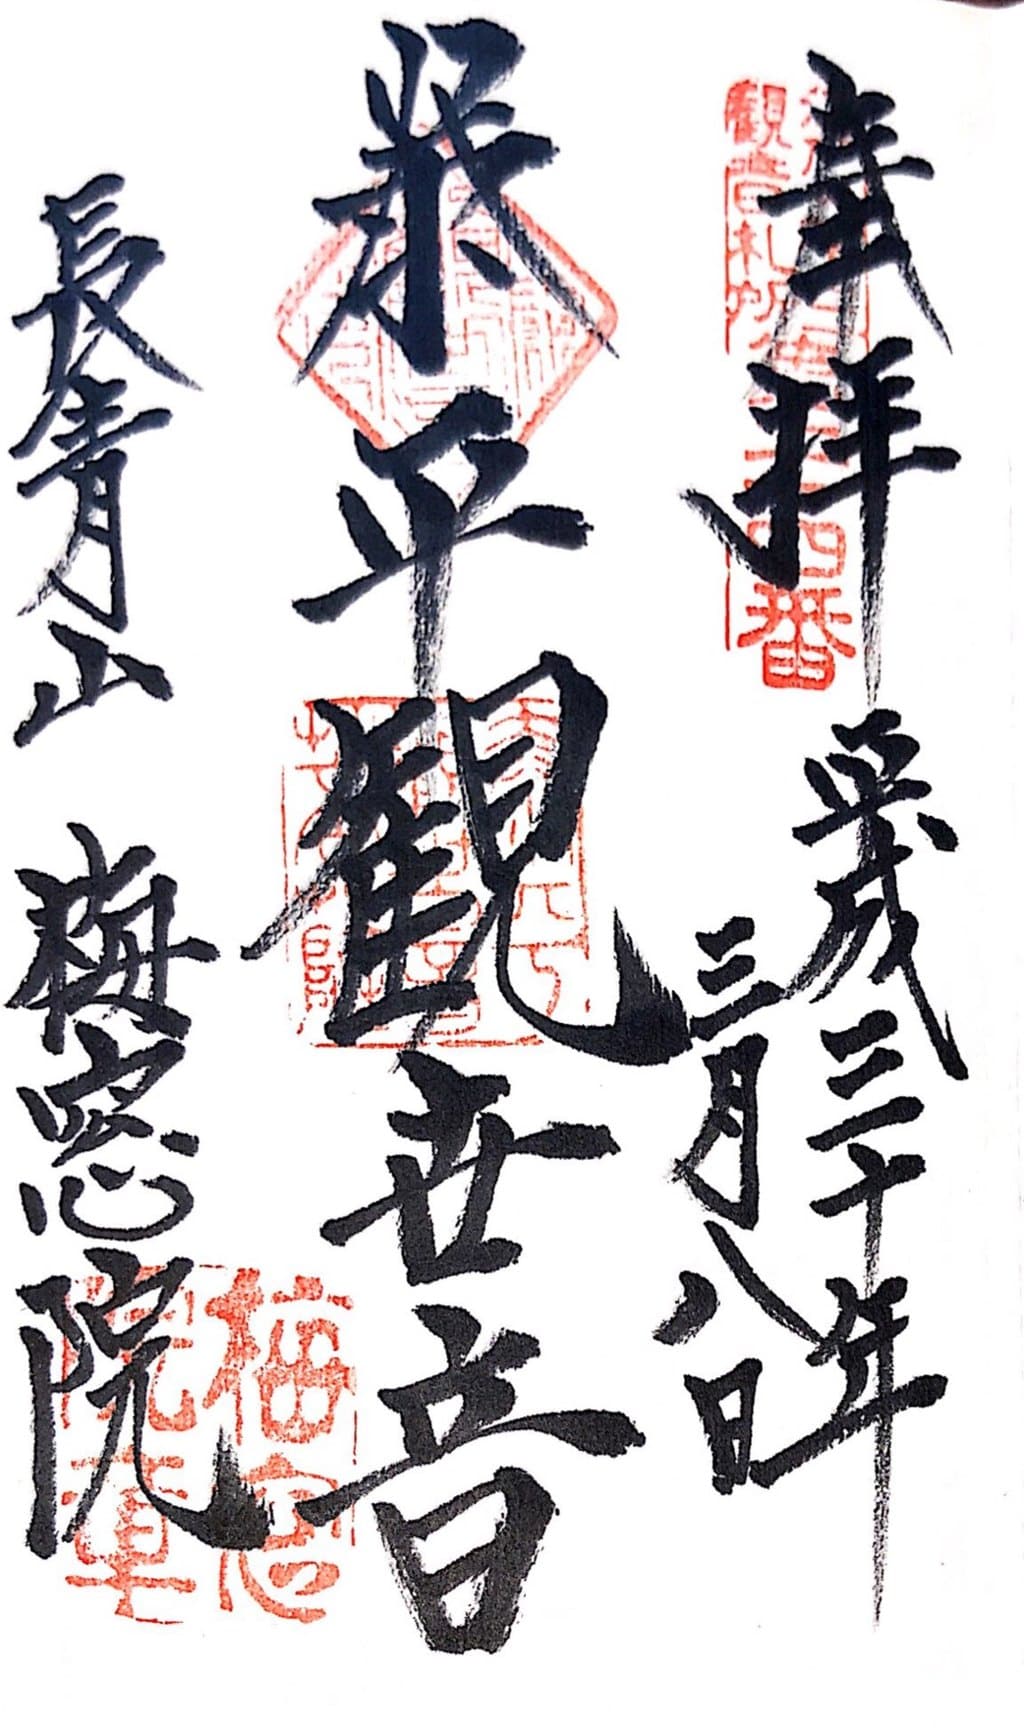 奉拝
平成三十年
三月八日
泰平觀世音
長青山 梅窓院
觀音札所
四番
梅窓
院章